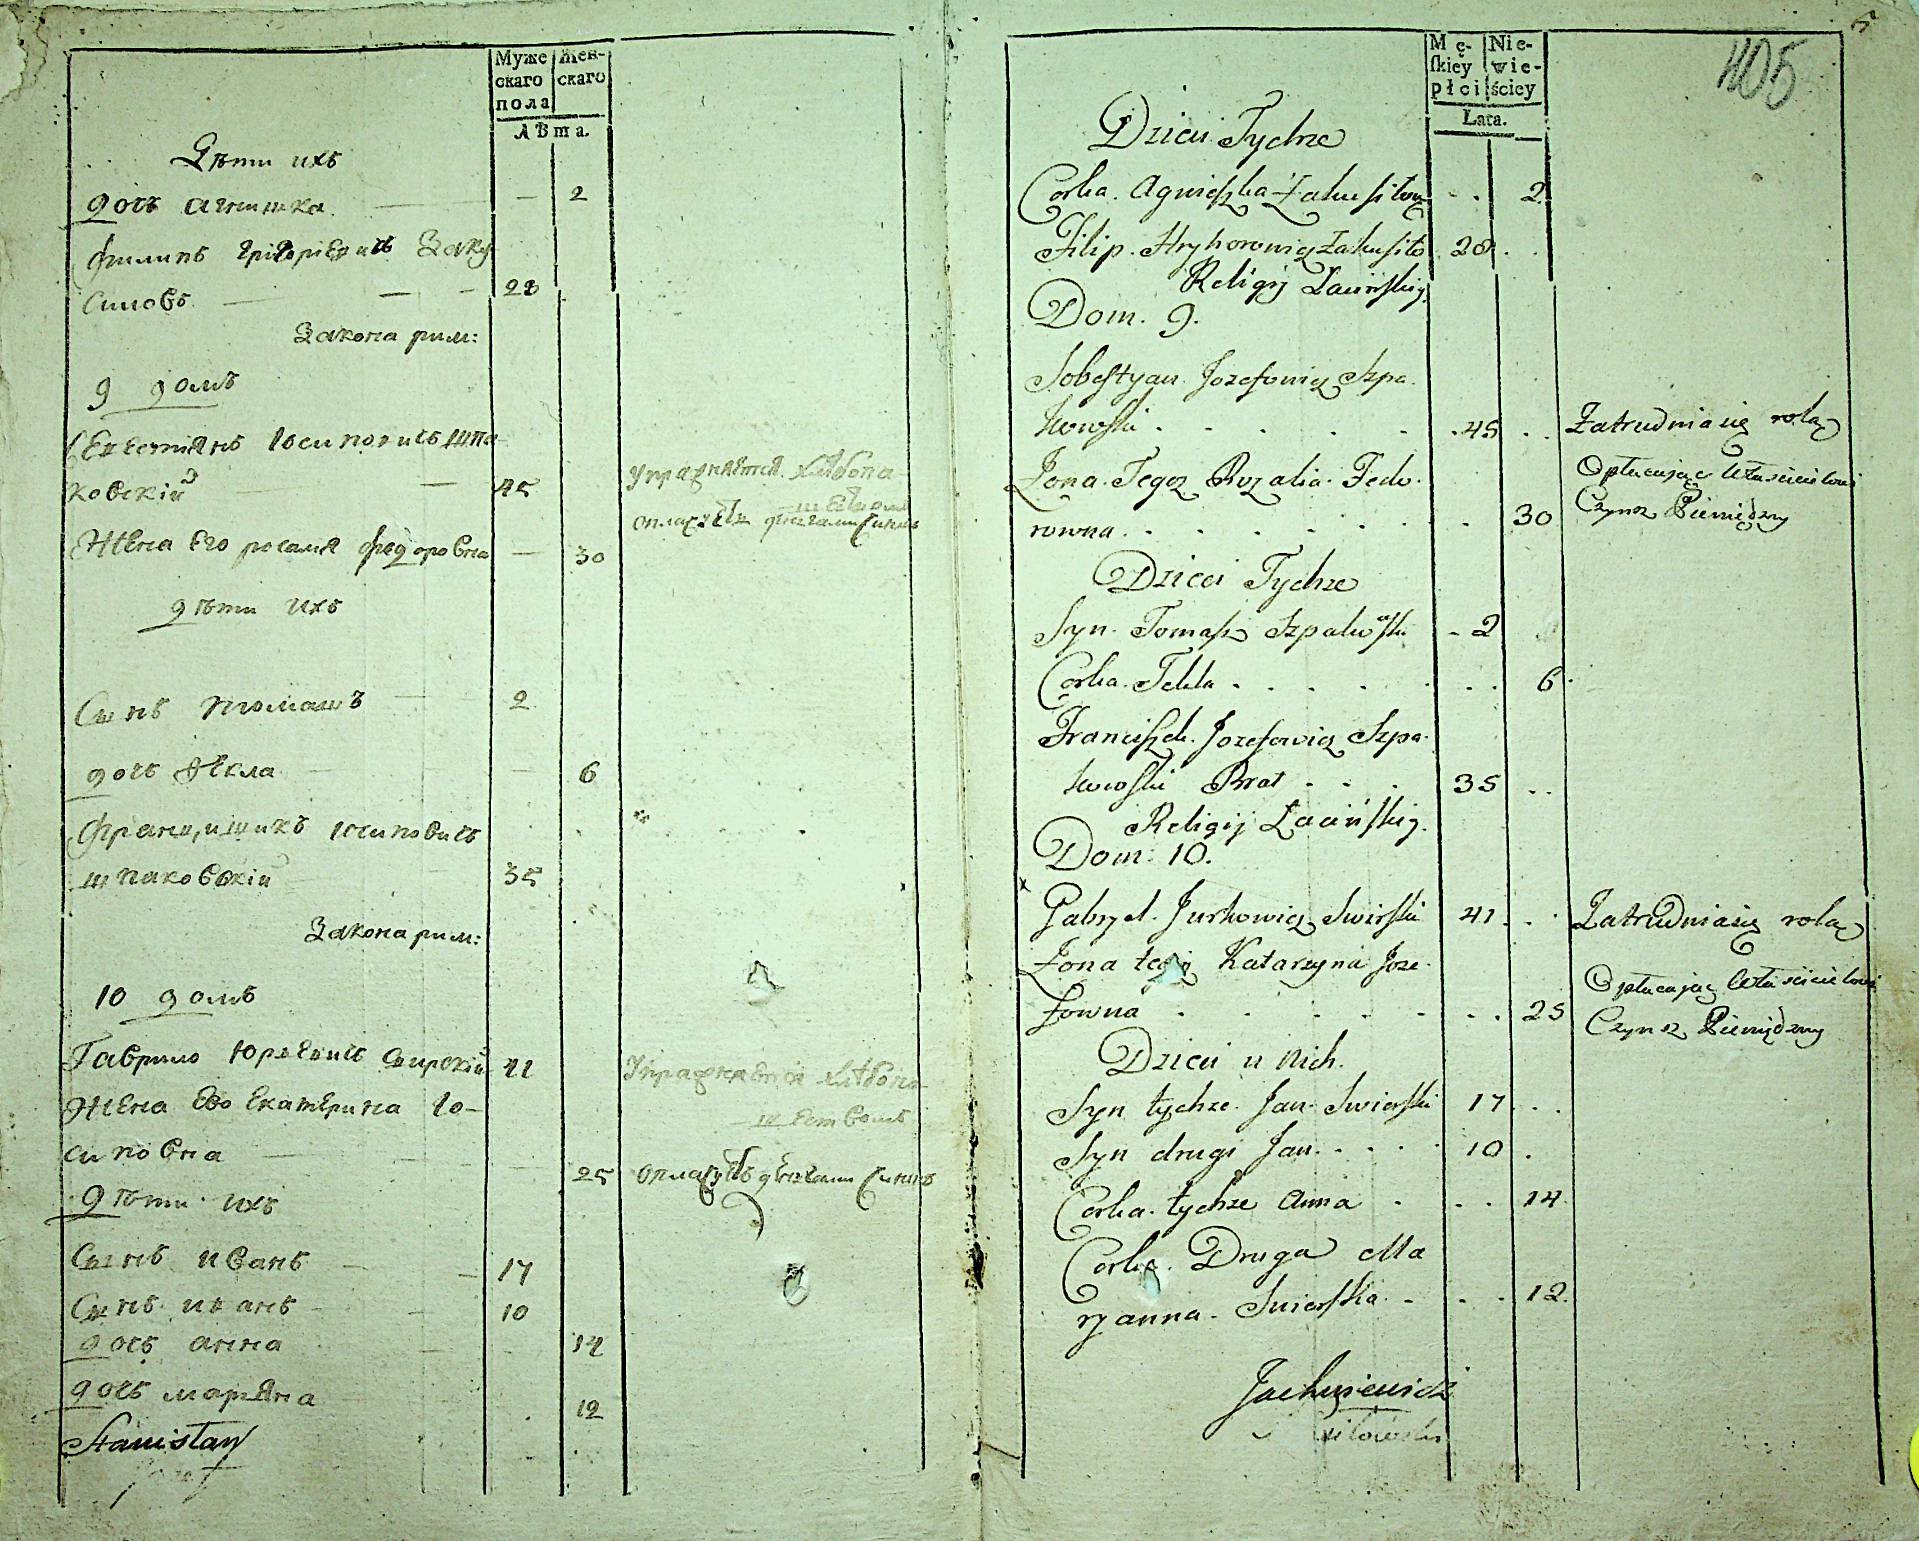 Муже
скаго
пола
Жен-
скаго
Лѣта.
Дѣти ихъ
дочь агнишка 2
филипъ григоріевичь Заку
силовъ 28
Закона рим:
9 домъ
Севестиянъ іосиповичь шпа
ковскій 45
Упражняется хлѣбопа
шествомъ
оплачуетъ денгами чиншъ
Жена его розалія федоровна 30
дѣти ихъ
Сынъ томашъ 2
дочь Текла 6
францишикъ іосиповичь
шпаковский 35
Закона рим:
10 домъ
Гаврило Юревичь свирский 41
Упражняется хлѣбопа
шествомъ
Жена Его екатерина іо-
сиповна 25
оплачуетъ денгами чиншъ
дѣти ихъ
Сынъ иванъ 17
Сынъ иванъ 10
дочь анна 14
дочь марьяна 12
Stanisław
Józef
5
405
Mę-
skiey
płci
Nie-
wie-
ściey
Lata.
Dzieci Tychże
Corka. Agnieszka Zakusiłow 2
Filip. Hryhorowicz Zakusiło 28
Religij Łacińskiey
Dom. 9.
Sobestyan. Jozefowicz Szpa-
kowski 45
Zatrudnia się rolą
Opłacając Własćicielowi
Czynsz Pieniężny
Żona Tegoż Rozalia Fedo-
rowna 30
Dzieci Tychże
Syn. Tomasz Szpakowski 2
Corka. Tekla 6
Franciszek. Jozefowicz Szpa-
kowski Brat 35
Religij Łacińskiey.
Dom: 10.
x
Gabryel. Jurkowicz Swirski 41
Zatrudnia się rolą
Opłacając Własćicielowi
Czynsz Pieniężny
Żona tegoż Katarzyna Joze-
fowna 25
Dzieci u nich.
Syn tychże Jan Swierski 17
Syn drugi Jan 10
Corka. tychże Anna 14
Corka. Druga Ma
ryanna. Swierska 12